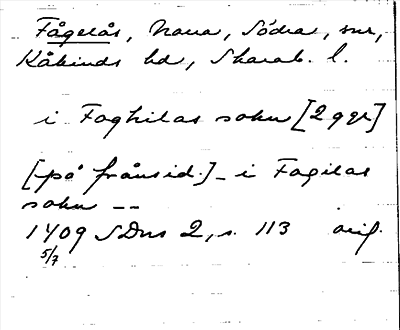 Fågelås, Norra, Södra, snr,
Kåkinds hd, Skarab. l.
i Foghilas sokn [2 ggr]
[på frånsid.] _ i Fogilas
sokn --
1409 SDns 2, s. 113 orig.
5/7